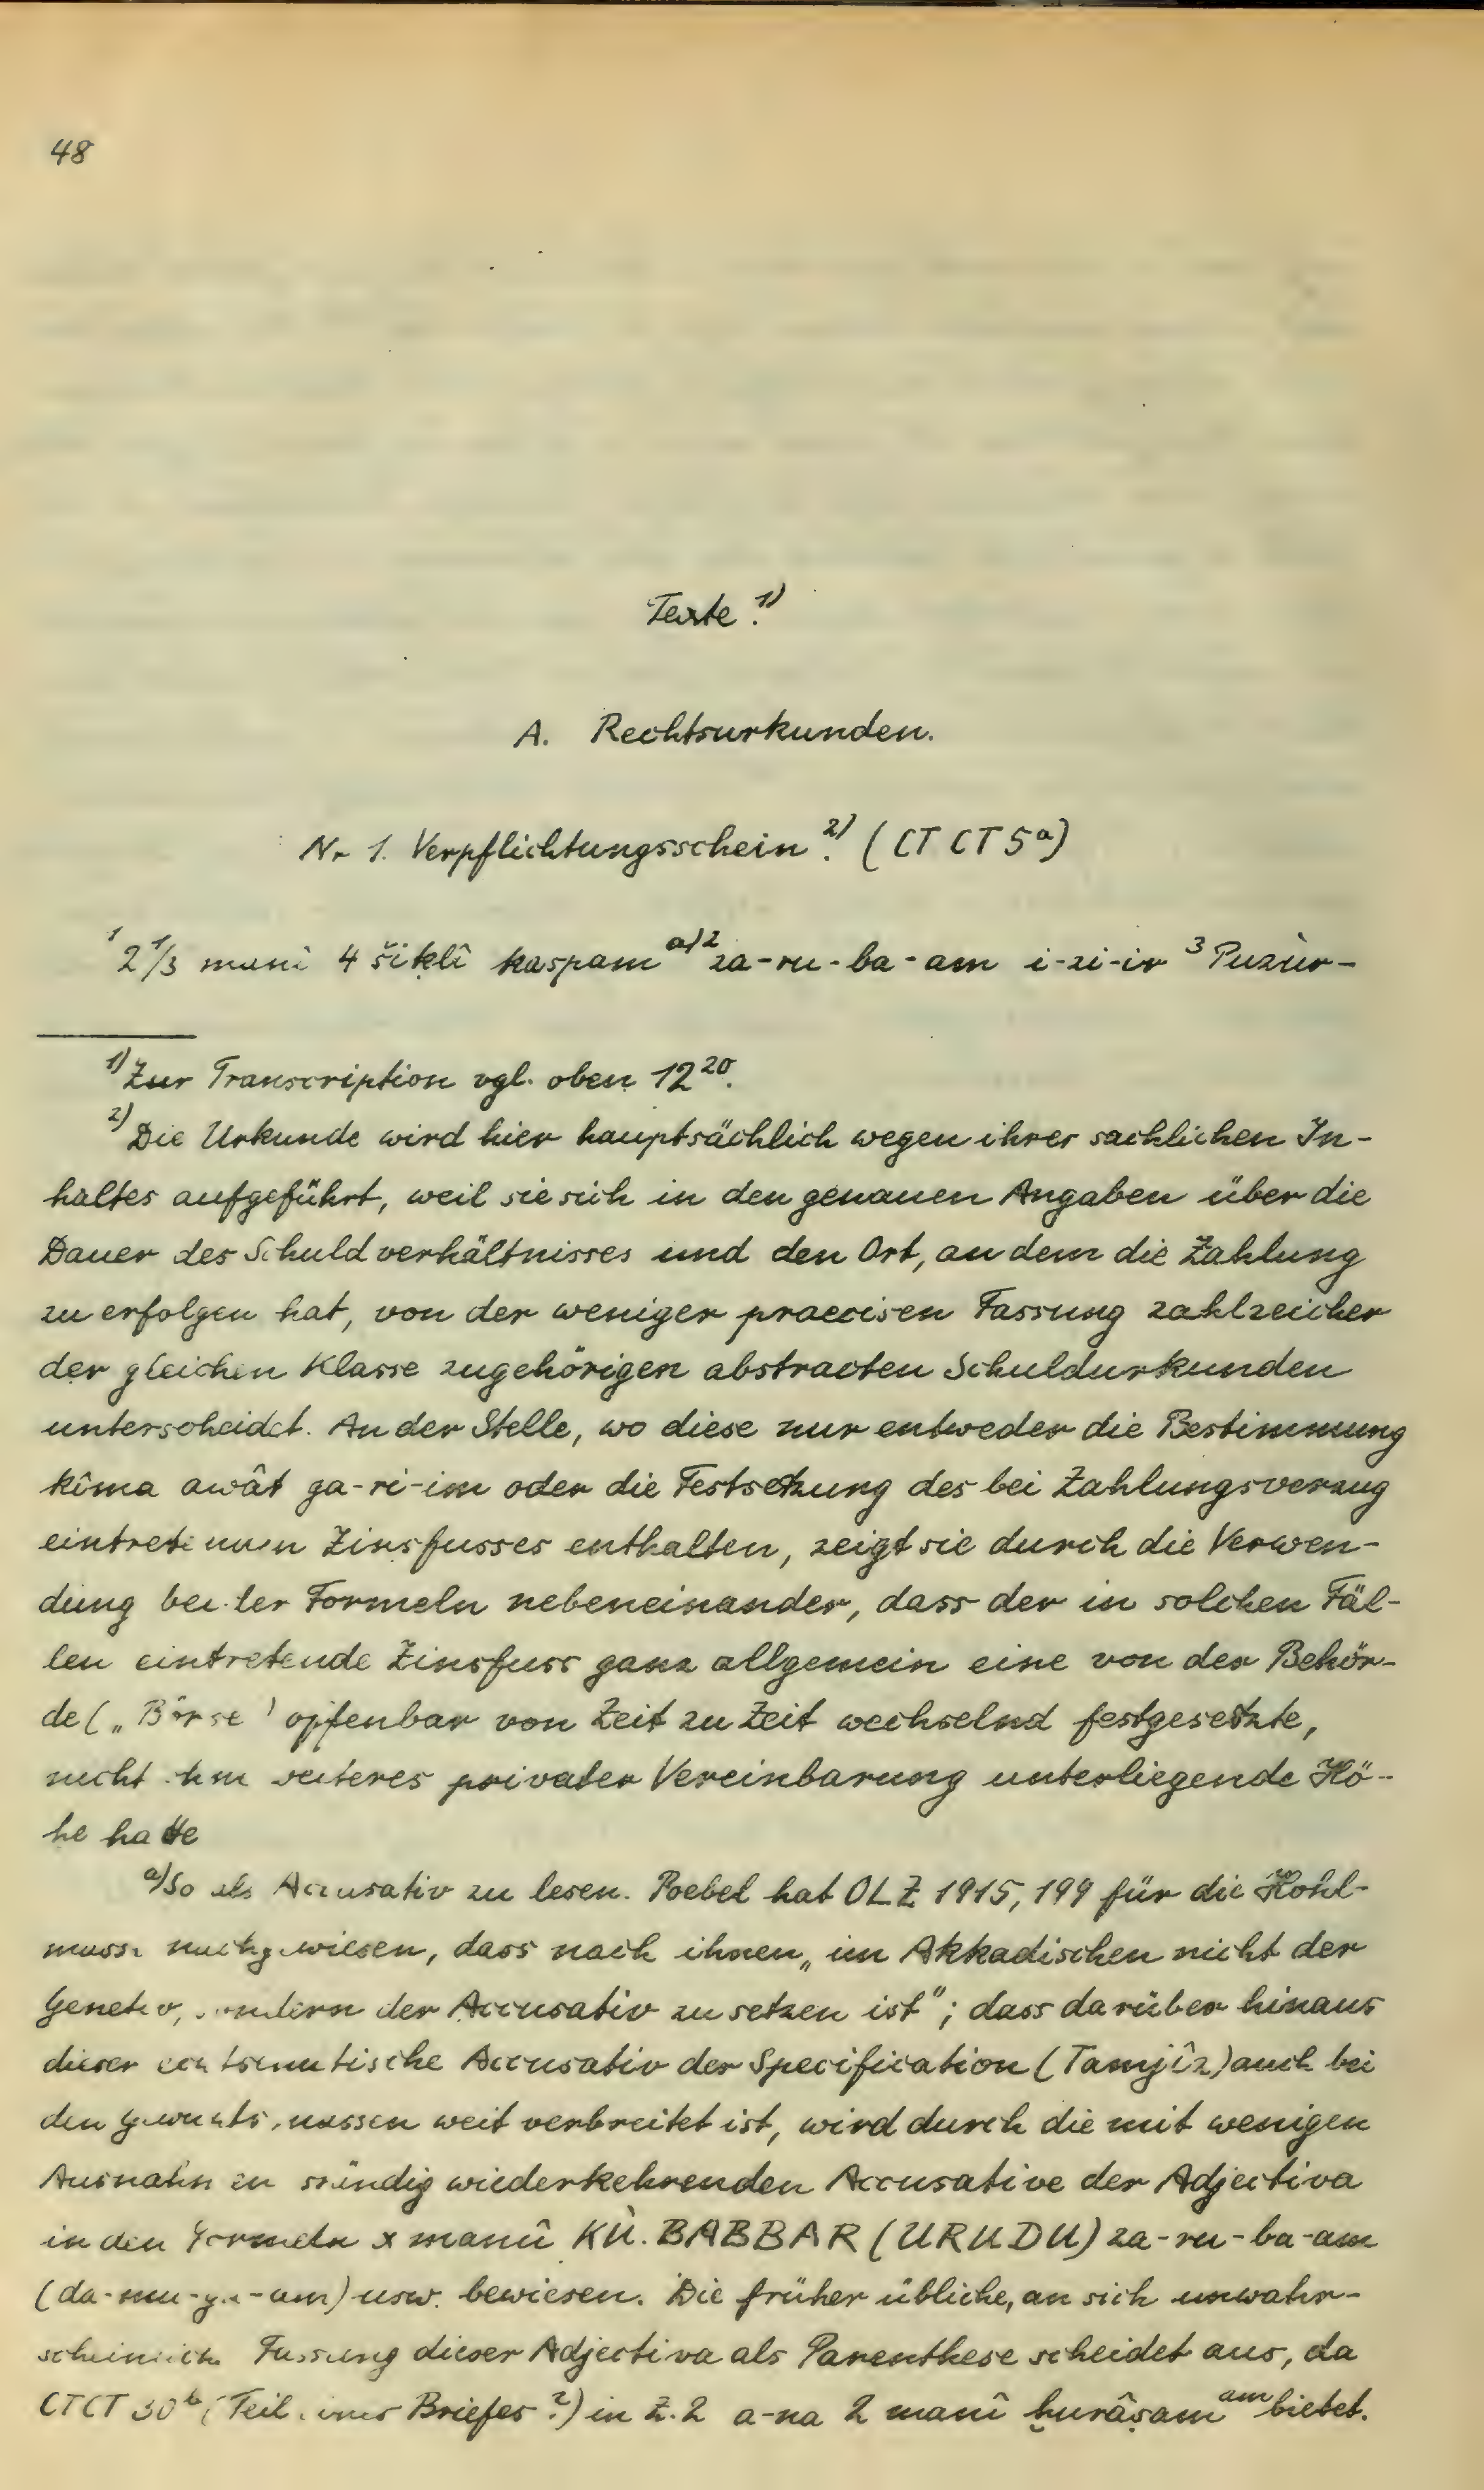 48
Texte.¹⁾
A. Rechtsurkunden.
Nr 1. Verpflichtungsschein.²⁾ (CT CT 5ᵃ)
¹ 2 1/3 manî 4 šiḳlî kaspam ᵃ⁾ ² za-ru-ba-am i-zi-ir ³ Puzùr-
¹⁾ Zur Transcription vgl. oben 12²⁰.
²⁾ Die Urkunde wird hier hauptsächlich wegen ihres sachlichen In-
haltes aufgeführt, weil sie sich in den genauen Angaben über die
Dauer des Schuldverhältnisses und den Ort, an dem die Zahlung
zu erfolgen hat, von der weniger praecisen Fassung zahlreicher
der gleichen Klasse zugehörigen abstracten Schuldurkunden
unterscheidet. An der Stelle, wo diese nur entweder die Bestimmung
kîma awât ga-ri-im oder die Festsetzung des bei Zahlungsverzug
eintretenden Zinsfusses enthalten, zeigt sie durch die Verwen-
dung beider Formeln nebeneinander, dass der in solchen Fäl-
len eintretende Zinsfuss ganz allgemein eine von der Behör-
de („Börse" offenbar von Zeit zu Zeit wechselnd festgesetzte,
nicht ohne weiteres privater Vereinbarung unterliegende Hö-
he hatte
ᵃ⁾ So als Accusativ zu lesen. Poebel hat OLZ 1915, 199 für die Hohl-
masse nachgewiesen, dass nach ihnen „im Akkadischen nicht der
Genetiv, sondern der Accusativ zu setzen ist"; dass darüber hinaus
dieser echtsemitische Accusativ der Specification (Tamjîz) auch bei
den Gewichtsmassen weit verbreitet ist, wird durch die mit wenigen
Ausnahmen ständig wiederkehrenden Accusative der Adjectiva
in den Formeln x manû KÙ.BABBAR (URUDU) za-ru-ba-am
(da-mu-ga-am) usw. bewiesen. Die früher übliche, an sich unwahr-
scheinliche Fassung dieser Adjectiva als Parenthese scheidet aus, da
CTCT 30ᵇ (Teil eines Briefes?) in Z. 2 a-na 2 manî ḫurâṣam ᵃᵐ bietet.